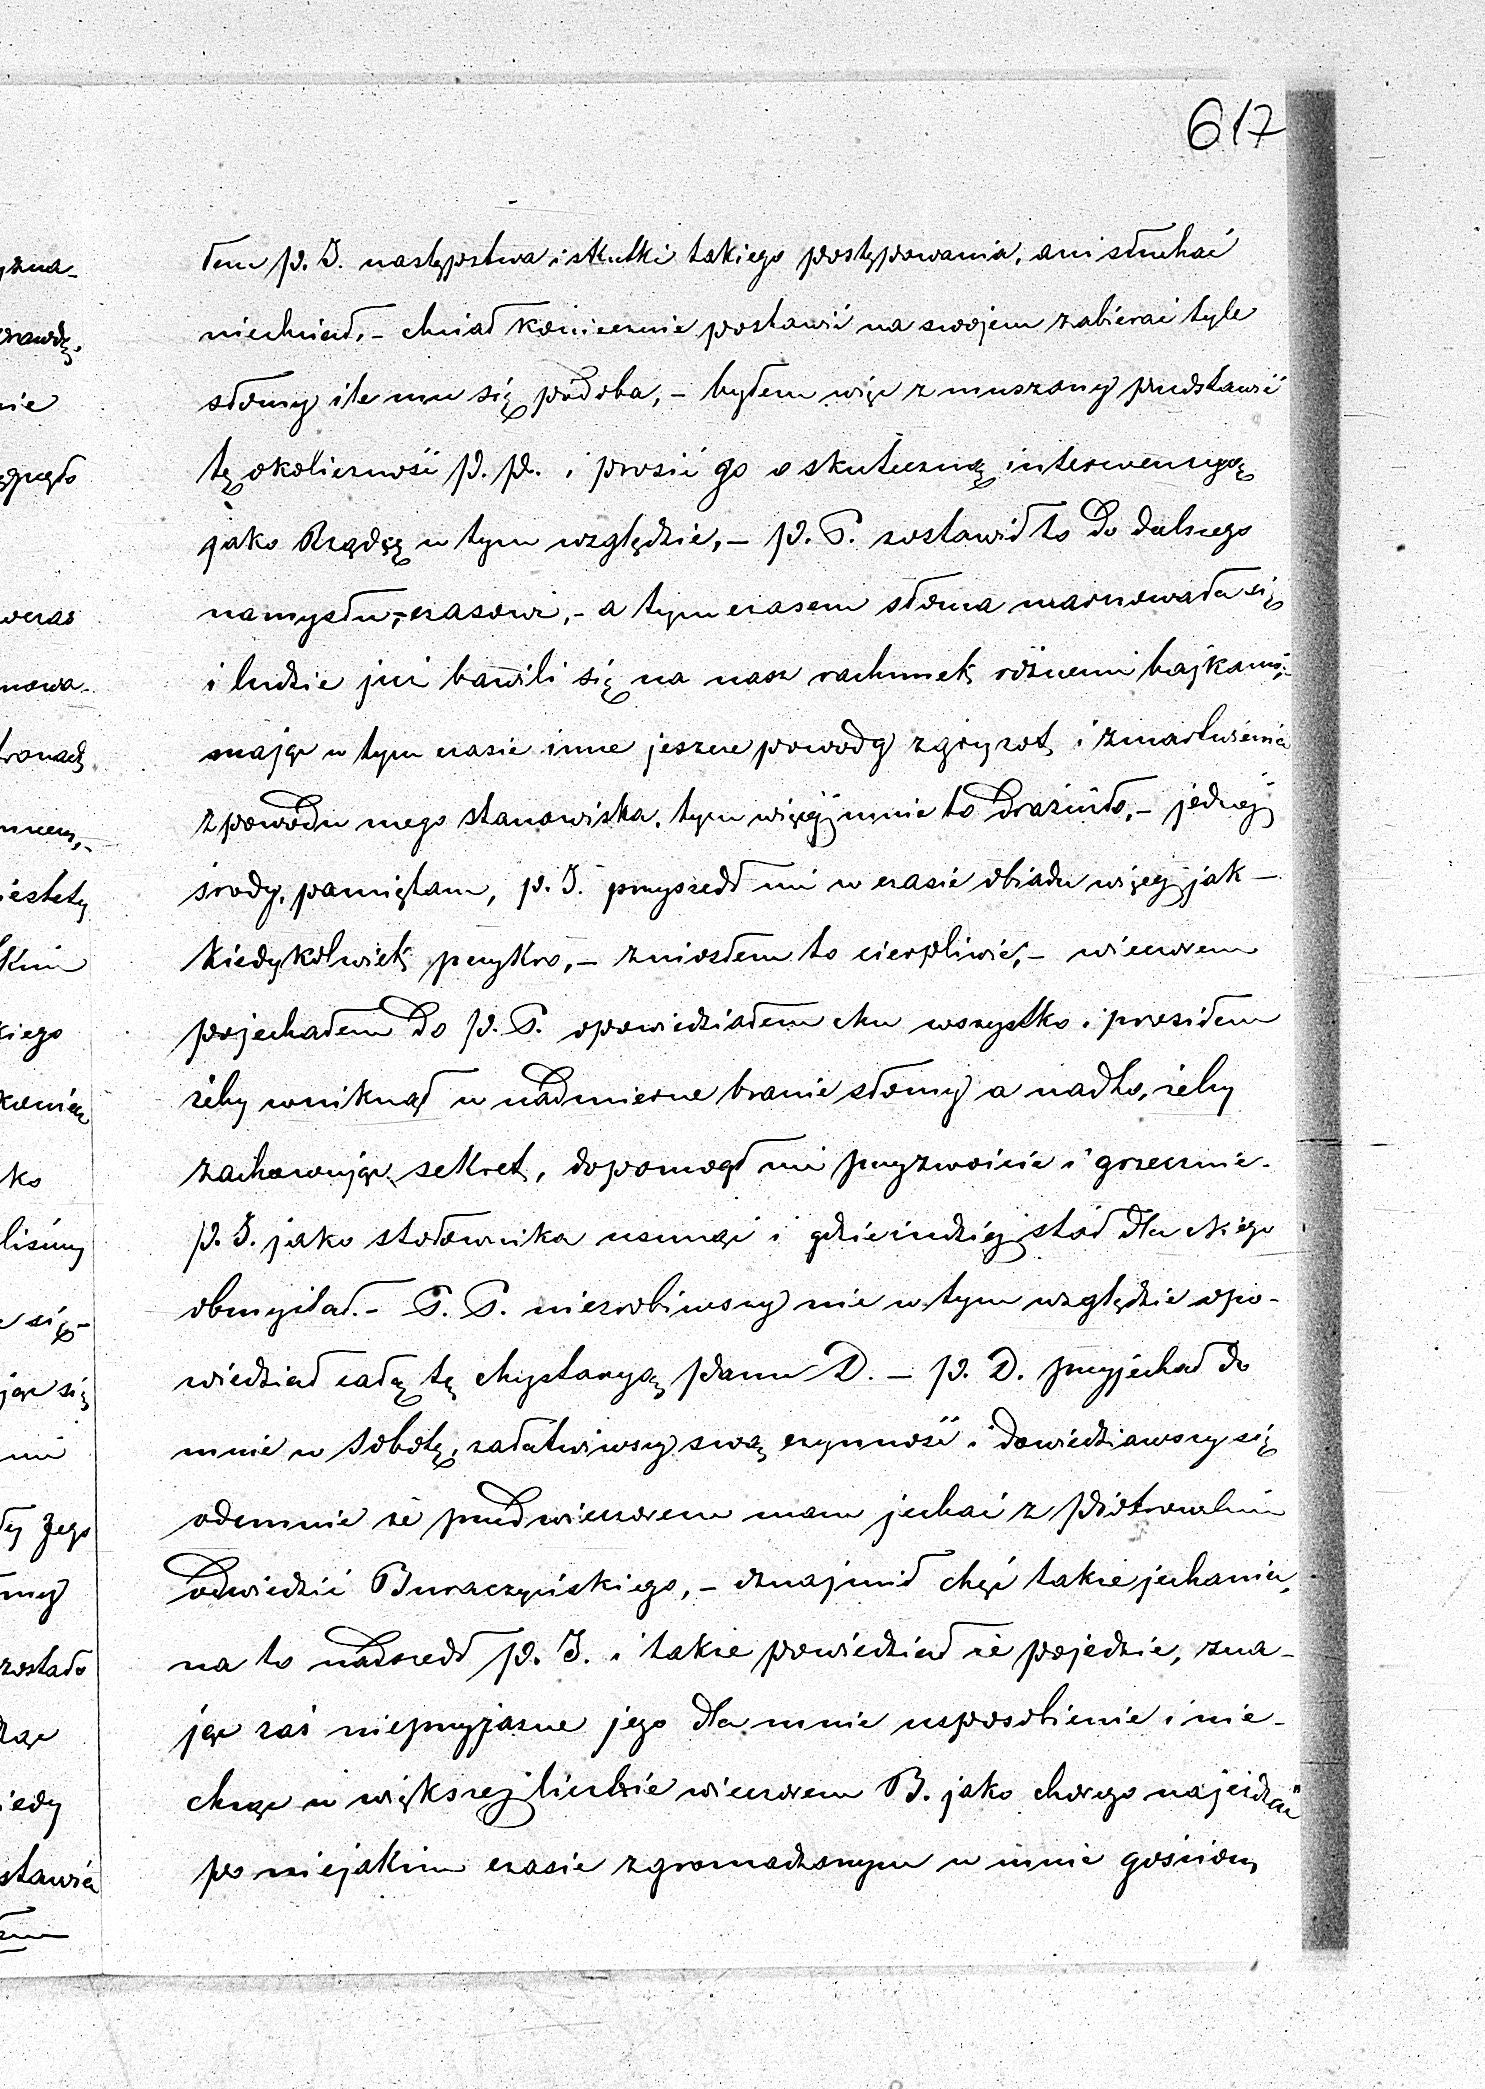 617
łem p. J. następstwa i skutki takiego postępowania, ani słuchać
niechciał, - chciał koniecznie postawić na swojem zabierać tyle
słomy ile mu się podoba, - byłem więc zmuszony przedstawić
tę okoliczność p. P. i prosić go o skuteczną interwencyą
jako Rządcę w tym względzie, - p. P. zostawił to do dalszego
namysłu, czasowi, - a tymczasem słoma marnowała się
i ludzie już bawili się na nasz rachunek różnemi bajkami,
mając w tym czasie inne jeszcze powody zgryzot i zmartwienia
z powodu mego stanowiska, tym więcej mnie to drażniło, - jednej
środy, pamiętam, p. J. przyszedł mi w czasie obiadu więcej jak -
kiedykolwiek przykro, - zniosłem to cierpliwie, - wieczorem
pojechałem do p. P. opowiedziałem mu wszystko i prosiłem
żeby wniknął w nadmierne branie słomy a nadto, żeby
zachowując sekret, dopomógł mi przyzwoicie i grzecznie
p. J. jako stołownika usunąć i gdzieindziej stół dla niego
obmyślał. - P. P. niezrobiwszy nic w tym względzie opo-
wiedział całą tę historyą panu D. - p. D. przyjechał do
mnie w sobotę, załatwiwszy swą czynność i dowiedziawszy się
odemnie że przed wieczorem mam jechać z Piotrowskim
odwiedzić Buraczyńskiego, - oznajmił chęć także jechania,
na to nadszedł p. J. i także powiedział że pojedzie, zna-
jąc zaś nieprzyjazne jego dla mnie usposobienie i nie-
chcąc w większej liczbie wieczorem B. jako chorego najeżdżać
po niejakim czasie zgromadzonym u mnie gościom